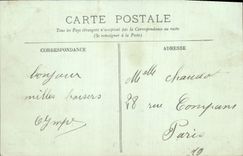 CARTE POSTALE
Tous les Pays étrangers n'acceptent pas la Correspondance au recto
(Se renseigner à la Poste)
CORRESPONDANCE
ADRESSE
bonjour
milles baisers
Olympe
Melle Chaudot
28 rue Compans
Paris
19